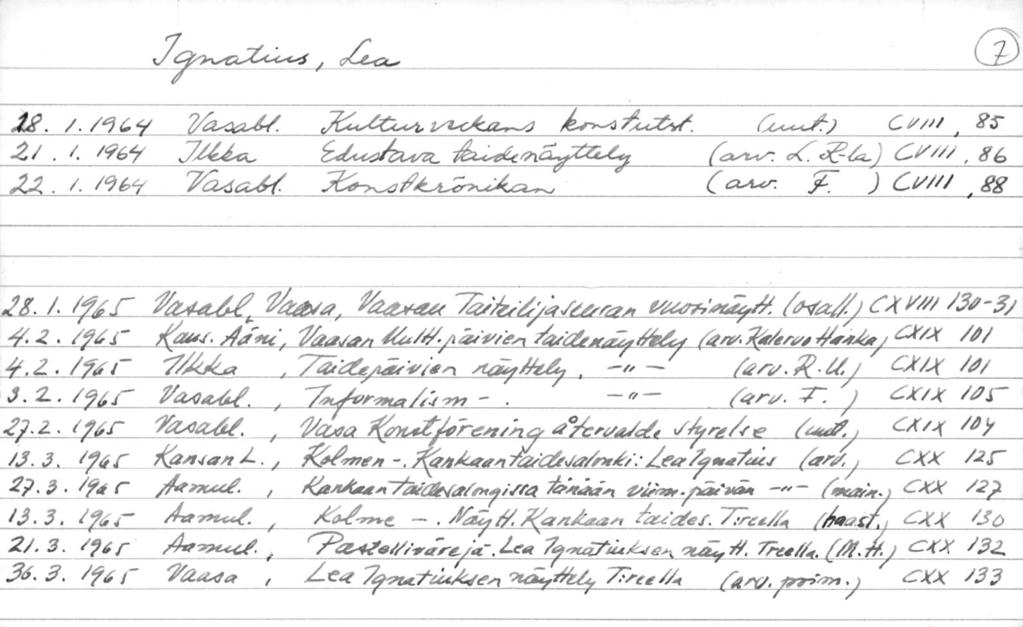 Ignatius, Lea 7
18. 1. 1964 Vasabl. Kulturveckans konstutst. (uut.) CVIII, 85
21. 1. 1964 Ilkka Edustava taidenäyttely (arv. L. R-la) CVIII, 86
22. 1. 1964 Vasabl. Konstkrönikan (arv. F. ) CVIII, 88
28. 1. 1965 Vasabl, Vaasa, Vaasan Taiteilijaseuran vuosinäytt. (osall.) CXVIII 130-31
4. 2. 1965 Kans. Ääni, Vaasan kultt. päivien taidenäyttely (arv. Kalervo Hanka) CXIX 101
4. 2. 1965 Ilkka, Taidepäivien näyttely, -"- (arv. R. U.) CXIX 101
3. 2. 1965 Vasabl., Informalism -. -"- (arv. F. ) CXIX 105
27. 2. 1965 Vasabl., Vasa Konstförening återvalde styrelse (uut.) CXIX 104
13. 3. 1965 Kansan L., Kolmen -. Kankaan taidesalonki: Lea Ignatius (arv.) CXX 125
27. 3. 1965 Aamul., Kankaan taidesalongissa tänään viim. päivän -"- (main.) CXX 127
13. 3. 1965 Aamul., Kolme -. Näytt. Kankaan taides. T:reella (haast.) CXX 130
21. 3. 1965 Aamul., Pastellivärejä. Lea Ignatiuksen näytt. Treella. (M. H.) CXX 132
30. 3. 1965 Vaasa, Lea Ignatiuksen näyttely T:reella (arv. poim.) CXX 133